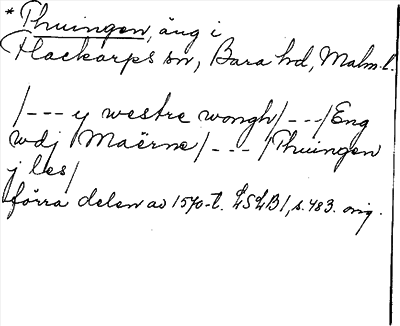 * Thuingen, äng i
Flackarps sn, Bara hd, Malm. l.
/--- y westre wongh/---/Eng
wdj Maërne/---/Thuingen
j les/
förra delen av 1570-t. LSLB1, s. 483. orig.